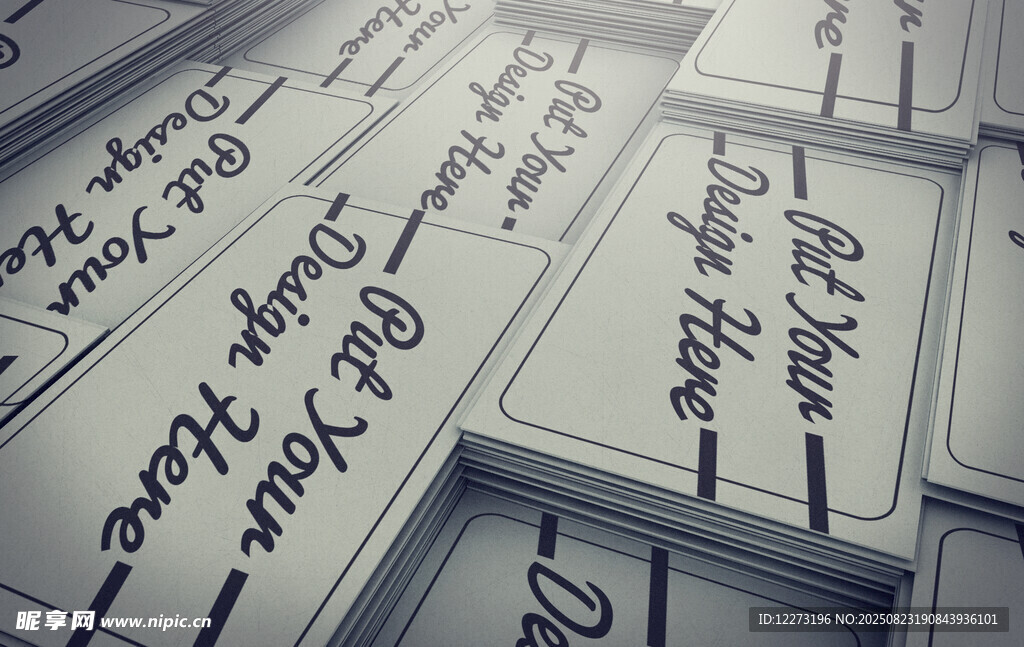 Your
Here
Put Your
Design Here
Put Your
Design Here
Put Your
Design Here
Put Your
Design Here
昵享网 www.nipic.cn
ID:12273196 NO:20250823190843936101